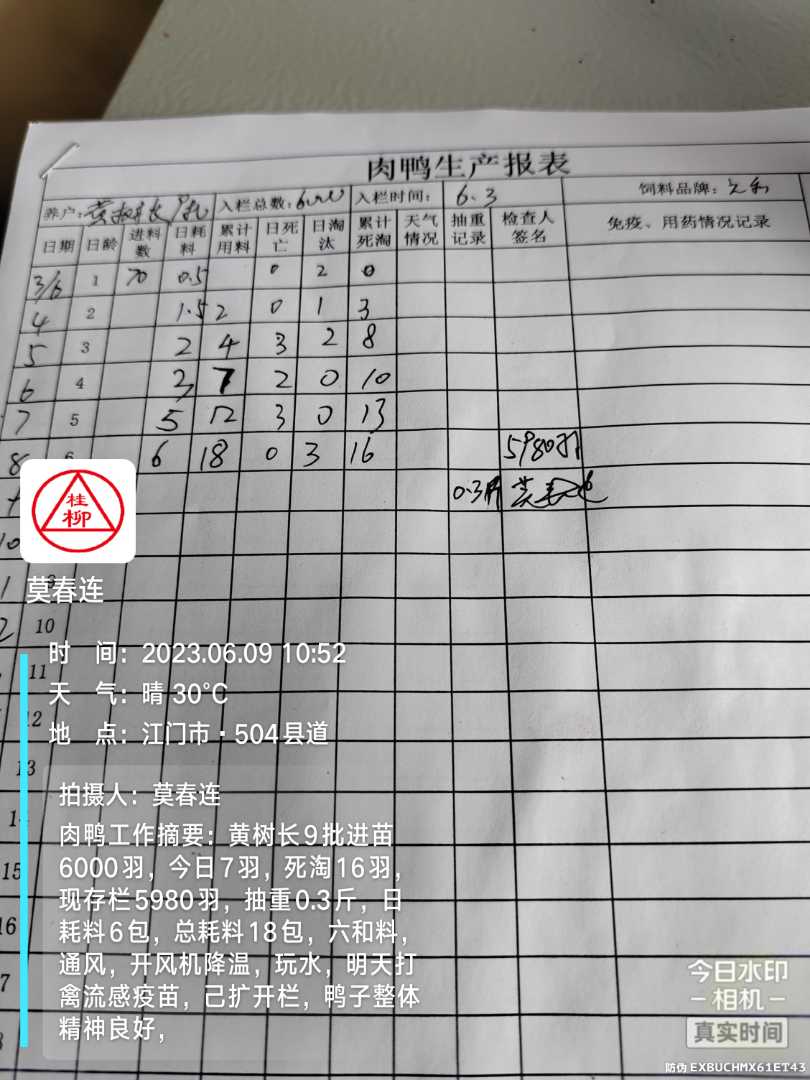 肉鸭生产报表
养户: 黄树长 入栏总数: 6000 入栏时间: 6.3 饲料品牌: 六和
日期 日龄 进料数 日耗料 累计用料 日死亡 日淘汰 累计死淘 天气情况 抽重记录 检查人签名 免疫、用药情况记录
3/6 1 70 0.5 0 2 0
4 2 1.5 2 0 1 3
5 3 2 4 3 2 8
6 4 3 7 2 0 10
7 5 5 12 3 0 13
8 6 6 18 0 3 16 5980羽
0.3斤 莫春连
10
桂柳
莫春连
10
时 间: 2023.06.09 10:52
11
天 气: 晴 30°C
12
地 点: 江门市·504县道
13
拍摄人: 莫春连
肉鸭工作摘要: 黄树长9批进苗
6000羽, 今日7羽, 死淘16羽,
15
现存栏5980羽, 抽重0.3斤, 日
16
耗料6包, 总耗料18包, 六和料,
通风, 开风机降温, 玩水, 明天打
禽流感疫苗, 己扩开栏, 鸭子整体
精神良好,
今日水印
-相机-
真实时间
防伪 EXBUCHMX61ET43